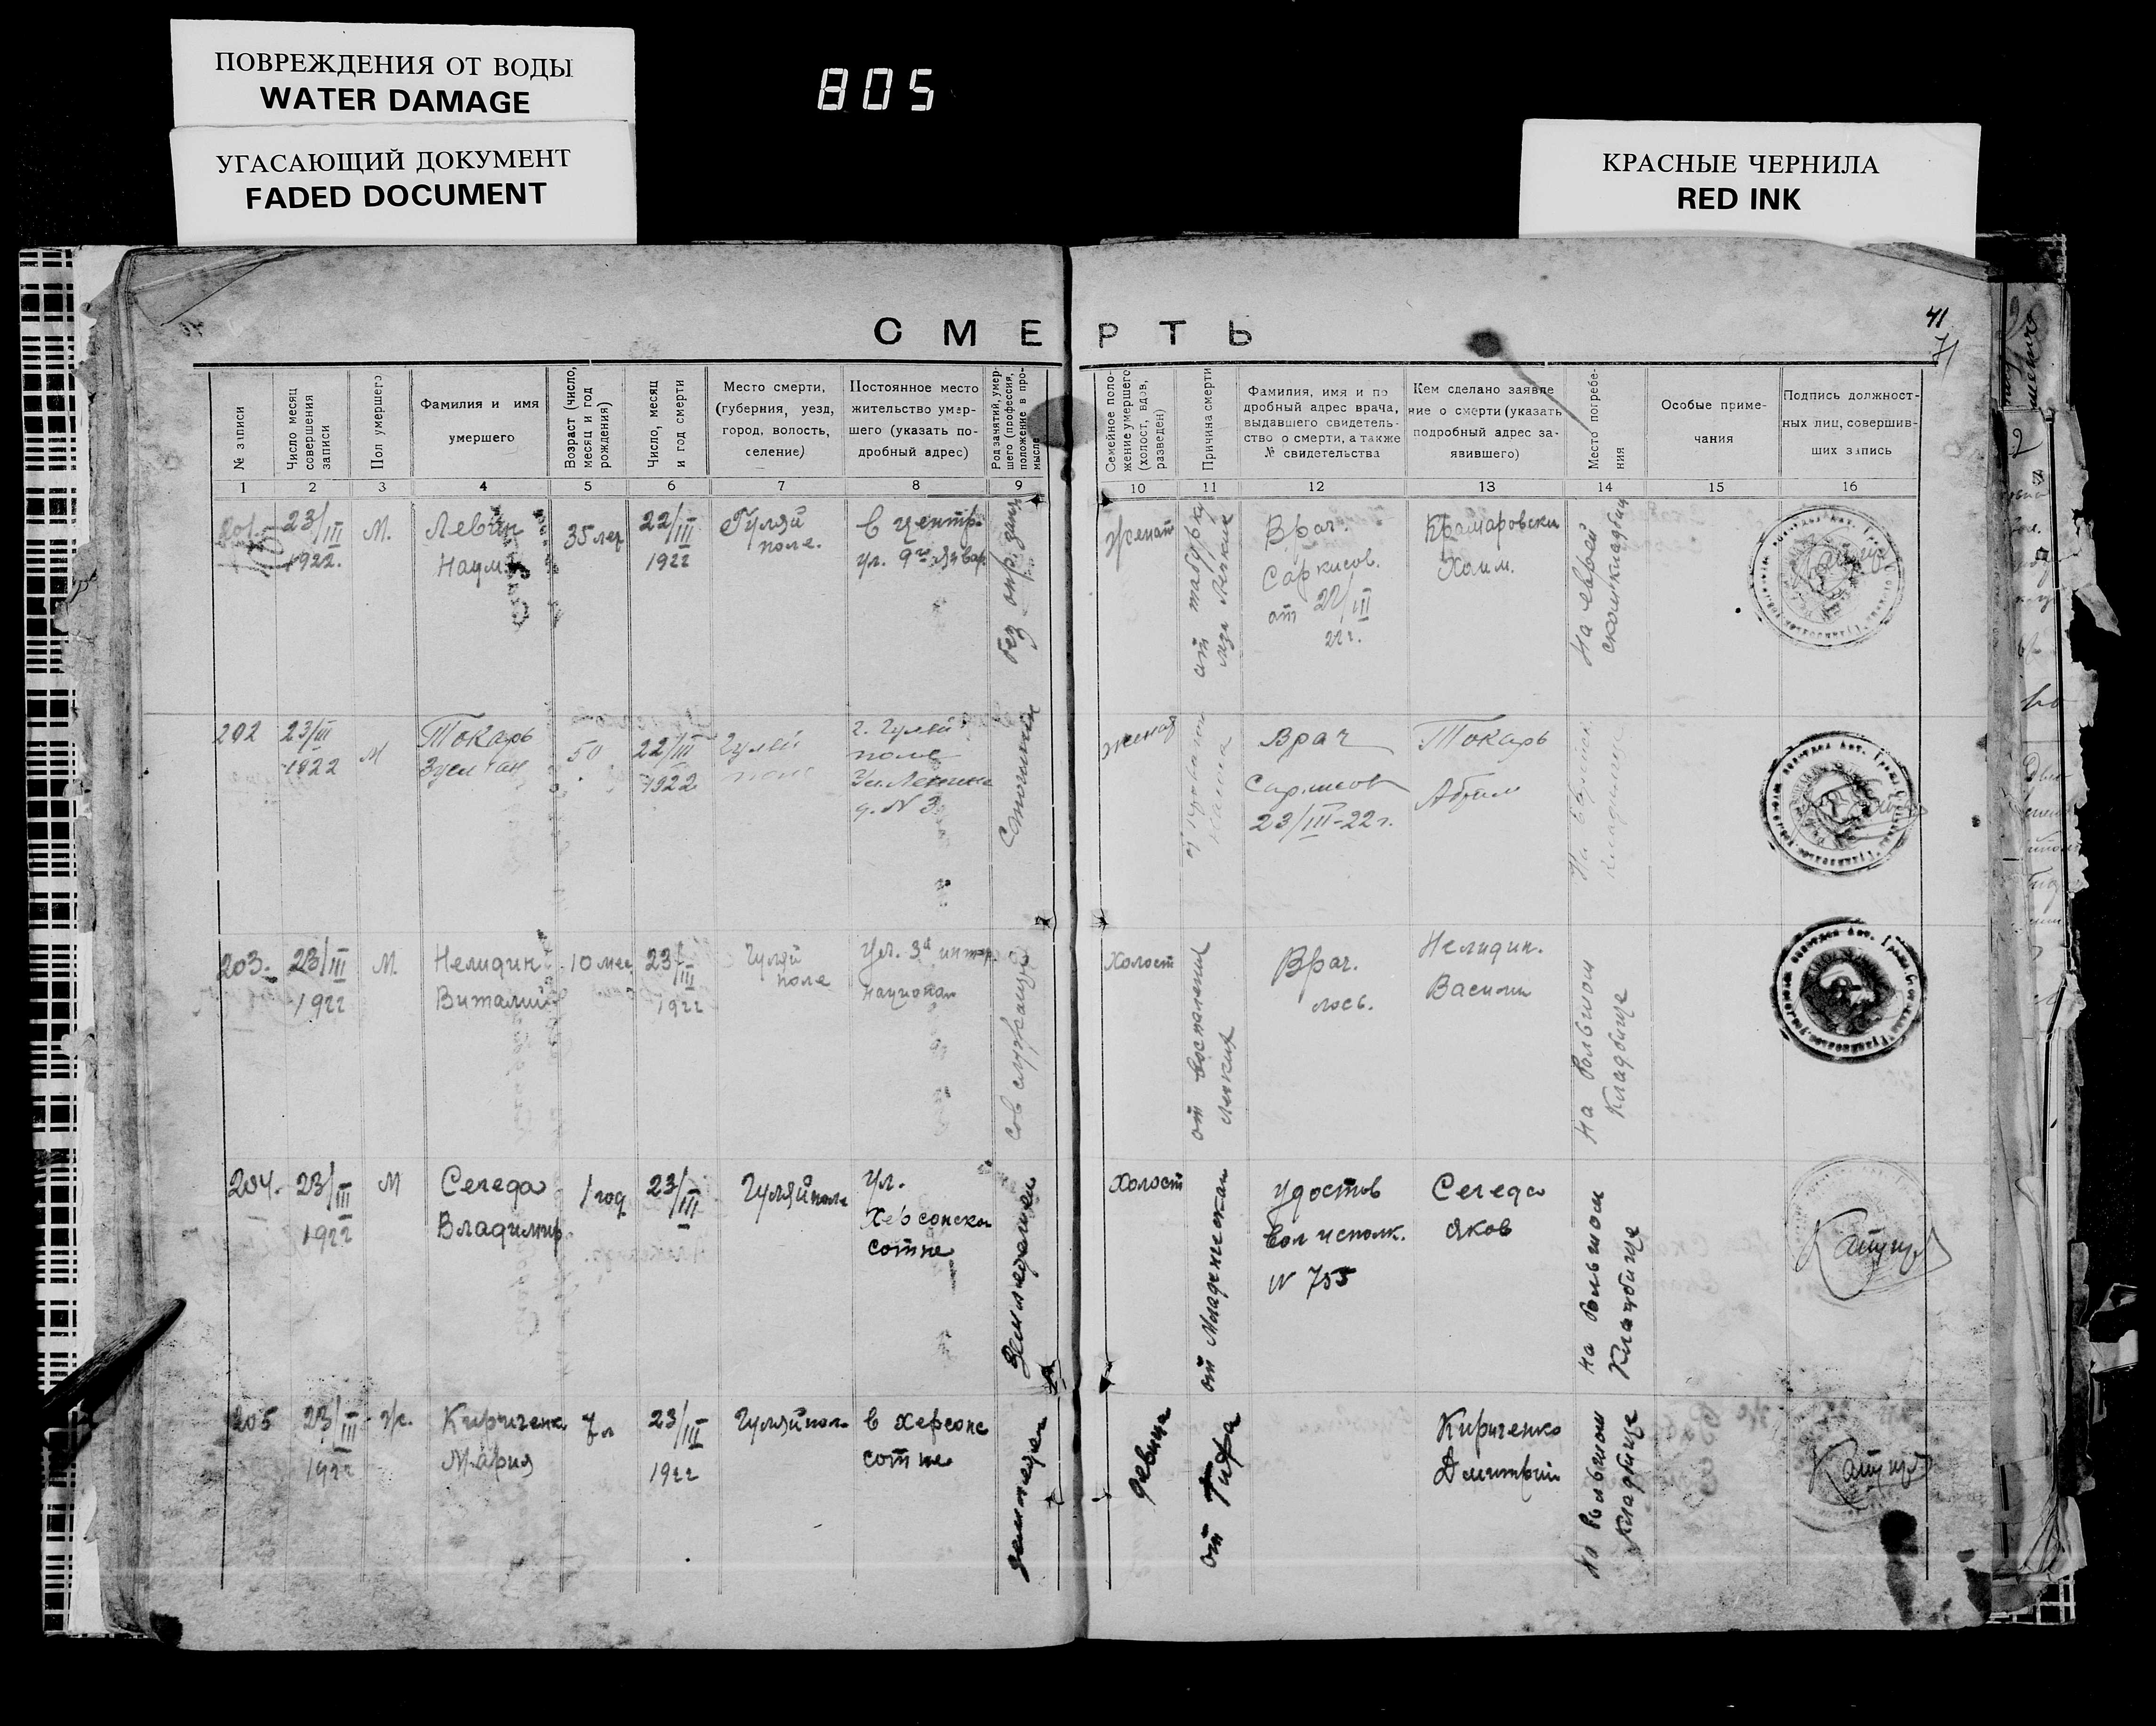 ПОВРЕЖДЕНИЯ ОТ ВОДЫ
WATER DAMAGE
УГАСАЮЩИЙ ДОКУМЕНТ
FADED DOCUMENT
805
КРАСНЫЕ ЧЕРНИЛА
RED INK
41
71
СМЕРТЬ
№ записи
Число месяц
совершения
записи
Пол умершего
Фамилия и имя
умершего
Возраст (число,
месяц и год
рождения)
Число, месяц
и год смерти
Место смерти,
(губерния, уезд,
город, волость,
селение)
Постоянное место
жительство умер-
шего (указать по-
дробный адрес)
Род занятий, умер-
шего (профессия,
положение в про-
мысле
Семейное поло-
жение умершего
(холост, вдов,
разведен)
Причина смерти
Фамилия, имя и по
дробный адрес врача,
выдавшего свидетель-
ство о смерти, а также
№ свидетельства
Кем сделано заявле
ние о смерти (указать
подробный адрес за-
явившего)
Место погребе-
ния
Особые приме-
чания
Подпись должност-
ных лиц, совершив-
ших запись
1 2 3 4 5 6 7 8 9 10 11 12 13 14 15 16
201
23/III
1922.
М.
Левин
Наум
35 лет
22/III
1922
Гуляй
поле.
в центр.
ул.
без опр. зан
женат
от
Врач.
Саркисов.
от 22/III
22 г.
Хаим.
На еврей
ском кладбищ
202
23/III
1922
М
Токарь
50
22/III
1922
Гуляй
поле
г. Гуляй
поле
Ул. Ленина
д. N 3
Сапожник
женат
Врач
Саркисов
23/III-22 г.
Токарь
Абрам
На
кладбище
203.
23/III
1922
М.
Нелидин
Виталий
10 мес
23/III
1922
Гуляй
поле
Ул. 3й интер
национал
Сов служащий
Холост
от воспаления
легких
Врач.
Нелидин.
Василий
На большом
Кладбище
204.
23/III
1922
М
Середа
Владимир
1 год
23/III
Гуляйполе
Ул.
Херсонской
сотне
Земледелец
Холост
от Младенческой
Удостов
Вол исполк.
N 755
Середа
Яков
На большом
Кладбище
205
23/III
1922
ж.
Кириченко
Мария
7 л
23/III
1922
Гуляйпол
в Херсонс
сотне
земледел
девица
от Тифа
Кириченко
Дмитрий
На большом
Кладбище